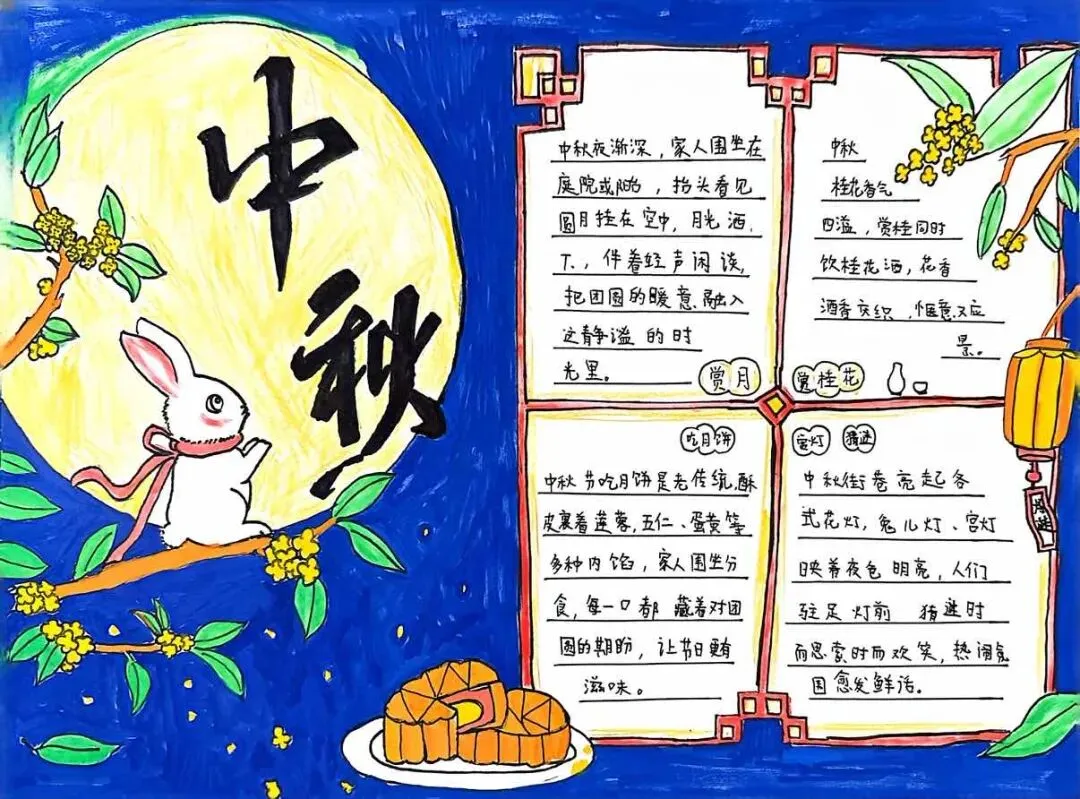 中秋
中秋夜渐深，家人围坐在
庭院或阳台，抬头看见
圆月挂在空中，月光洒
下，伴着轻声闲谈，
把团圆的暖意融入
这静谧的时
光里。
赏月
中秋
桂花香气
四溢，赏桂同时
饮桂花酒，花香
酒香交织，惬意又应
景。
赏桂花
吃月饼
中秋节吃月饼是老传统，酥
皮裹着莲蓉，五仁、蛋黄等
多种内馅，家人围坐分
食，每一口都藏着对团
圆的期盼，让节日更有
滋味。
灯 猜谜
中秋街巷亮起各
式花灯，兔儿灯、宫灯
映着夜色明亮，人们
驻足灯前 猜谜时
而思索时而欢笑，热闹氛
围愈发鲜话。